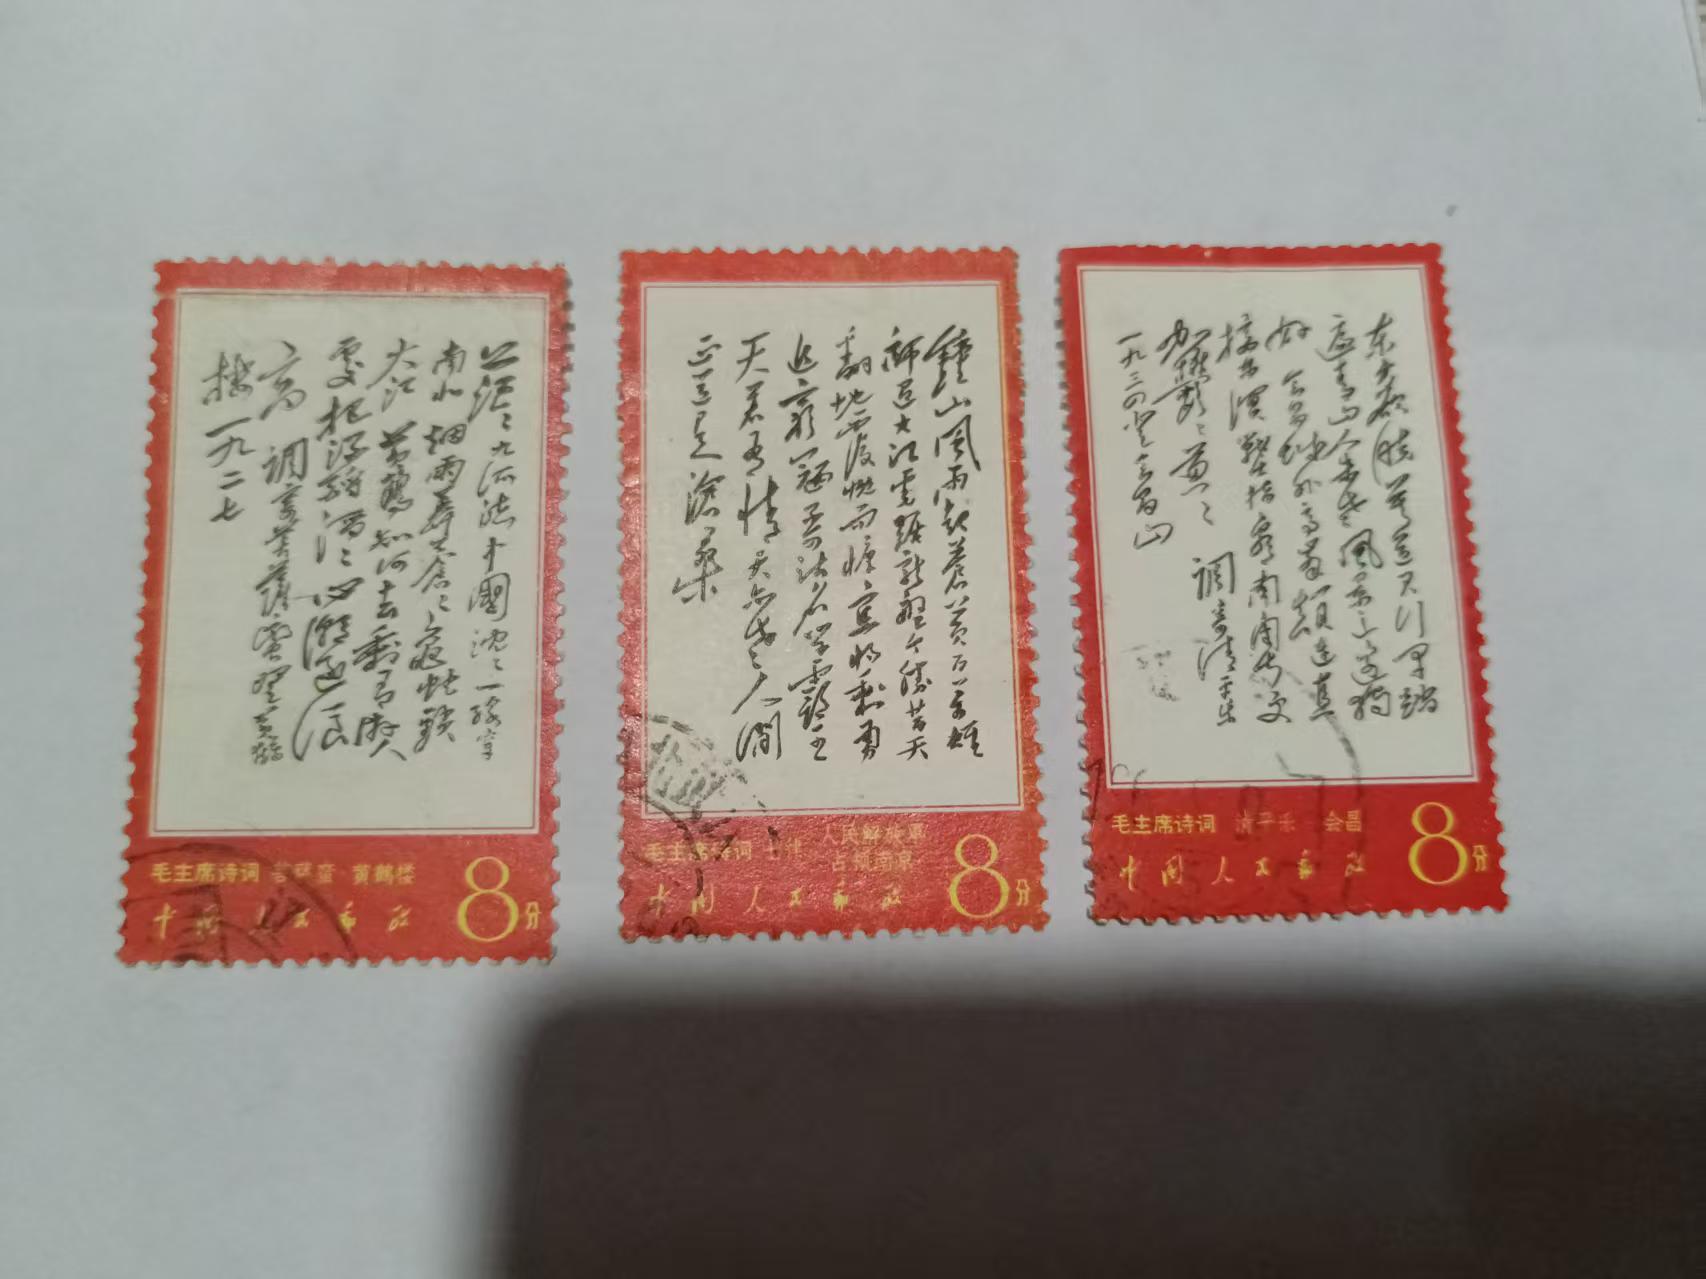 茫茫九派流中國沈沈一綫穿
南北烟雨莽蒼蒼龜蛇鎖
大江 黄鶴知何去剩有游人
處把酒酹滔滔心潮逐浪
高 調寄菩薩蠻登黄鶴
樓 一九二七
毛主席诗词 菩萨蛮·黄鹤楼
中国人民邮政 8分
鐘山風雨起蒼黄百万雄
師过大江虎踞龍盤今勝昔天
翻地覆慨而慷宜将剩勇
追窮寇不可沽名学霸王
天若有情天亦老人間
正道是滄桑
毛主席诗词 七律 人民解放军
占领南京
中国人民邮政 8分
东方欲曉莫道君行早踏
遍青山人未老風景这边獨
好 会昌城外高峯顛连直
接东溟戰士指看南粤更
加鬱鬱葱葱 調寄清平乐
一九三四登会昌山
毛主席诗词 清平乐 会昌
中国人民邮政 8分